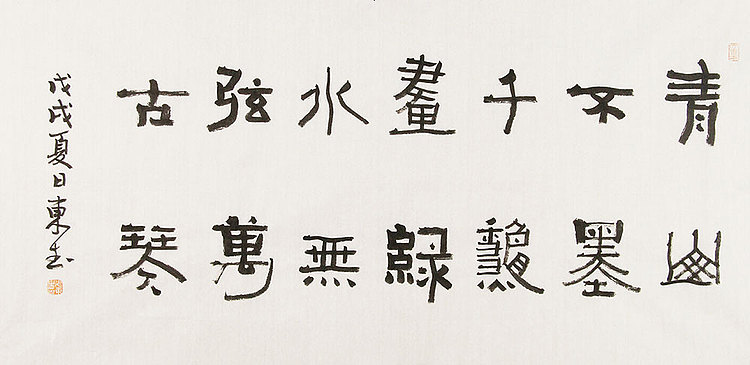 青山
不墨
千龝
畫綠
水無
弦萬
古琴
戊戌夏日東書